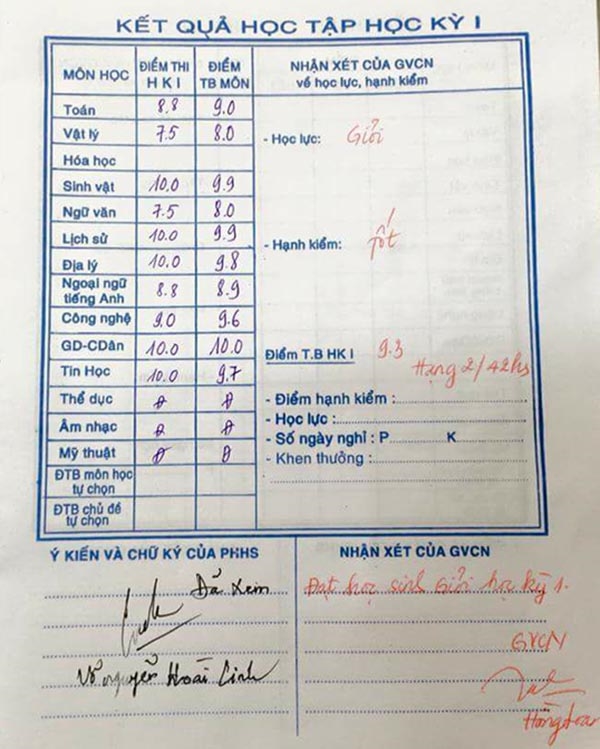 KẾT QUẢ HỌC TẬP HỌC KỲ I
MÔN HỌC ĐIỂM THI HKI ĐIỂM TB MÔN NHẬN XÉT CỦA GVCN về học lực, hạnh kiểm
Toán 8.8 9.0
Vật lý 7.5 8.0 - Học lực: Giỏi
Hóa học
Sinh vật 10.0 9.9
Ngữ văn 7.5 8.0
Lịch sử 10.0 9.9 - Hạnh kiểm: Tốt
Địa lý 10.0 9.8
Ngoại ngữ tiếng Anh 8.8 8.9
Công nghệ 9.0 9.6
GD-CDân 10.0 10.0 Điểm T.B HK I 9.3
Tin Học 10.0 9.7 Hạng 2/42hs
Thể dục Đ Đ - Điểm hạnh kiểm :
Âm nhạc Đ Đ - Học lực :
- Số ngày nghỉ : P K
Mỹ thuật Đ Đ - Khen thưởng :
ĐTB môn học tự chọn
ĐTB chủ đề tự chọn
Ý KIẾN VÀ CHỮ KÝ CỦA PHHS NHẬN XÉT CỦA GVCN
Đã xem Đạt học sinh Giỏi học kỳ 1.
GVCN
Võ Nguyễn Hoài Linh